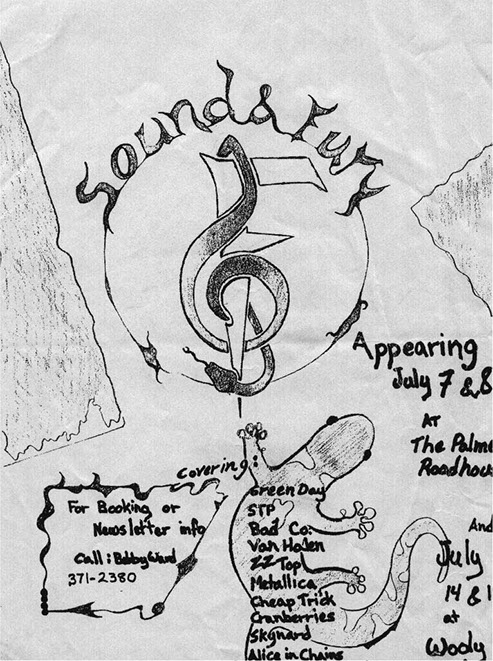 Sound & Fury
Appearing
July 7 & 8
AT
The Palme
Roadhou
Covering:
Green Day
STP
Bad Co.
Van Halen
ZZ Top
Metallica
Cheap Trick
Cranberries
Skynard
Alice in Chains
For Booking or
Newsletter info
Call: Bobby Ward
371-2380
And
July
14 & 1
at
Wooly